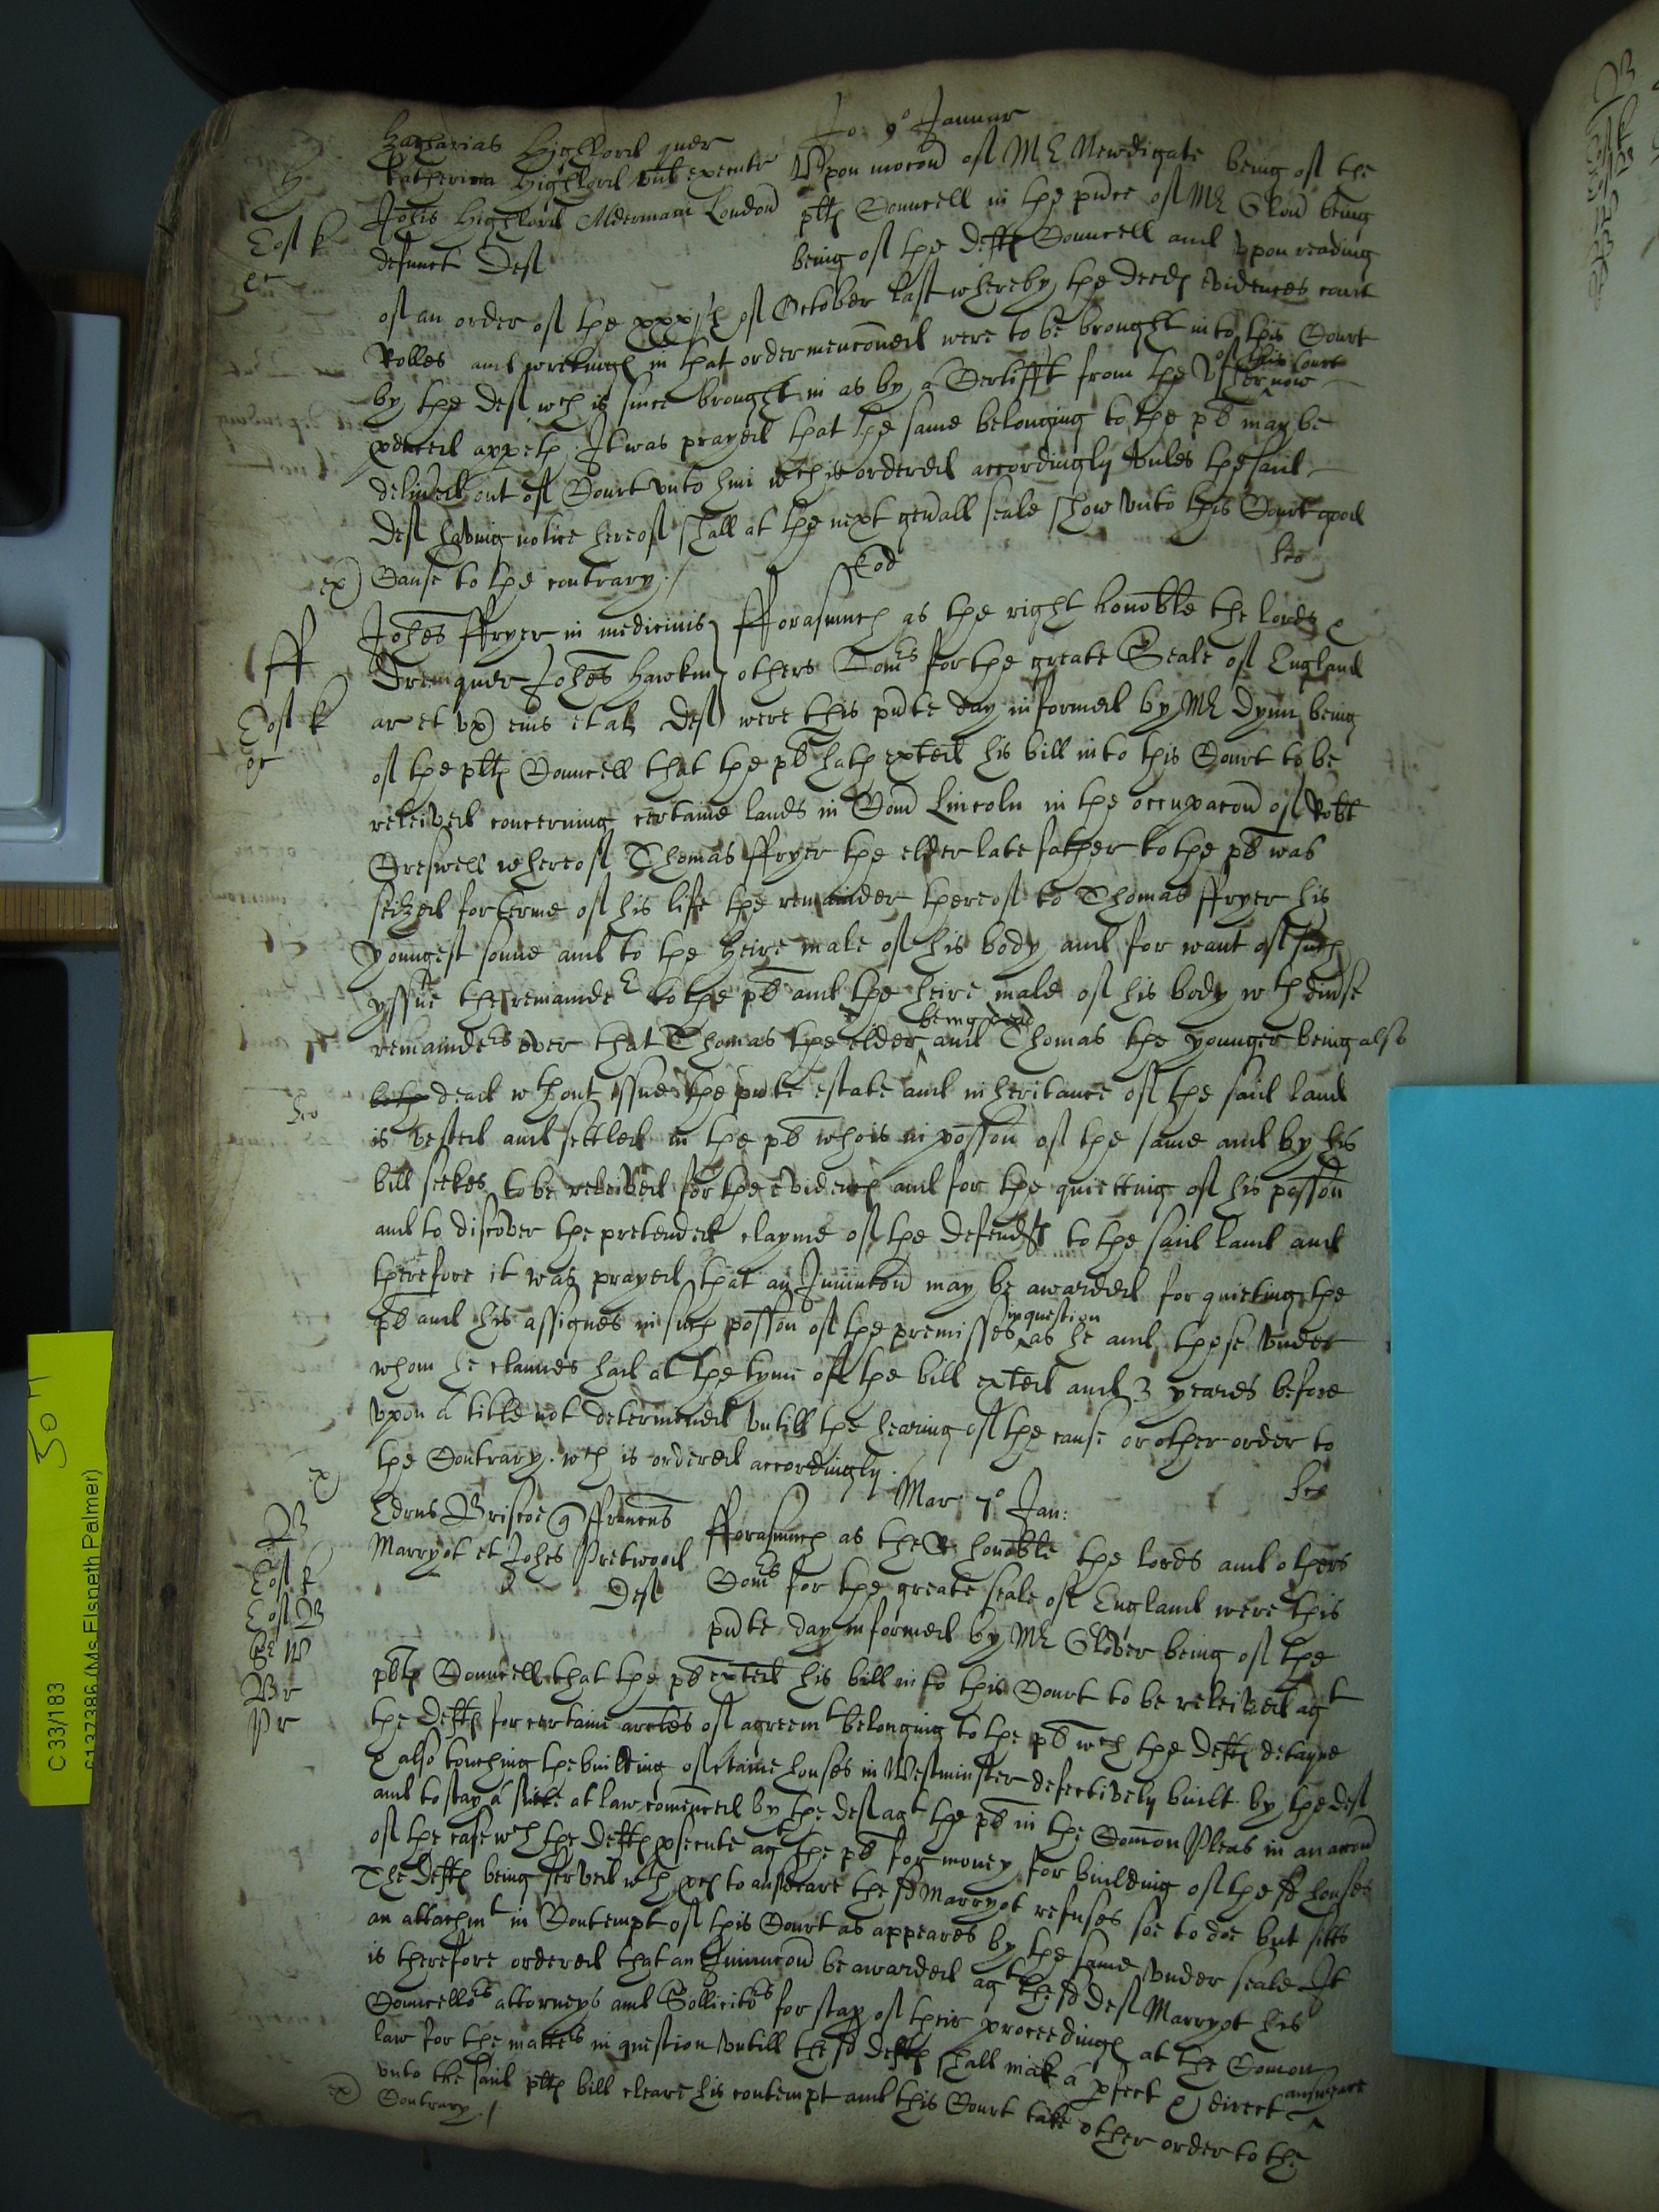 Jo: 9o Januar
Zacharias Highlord quer
Katherina Highlord vid execute Vpon mocon of Mr Newdigate being of the
Johis Highlord Alderman London pltes Councell in the pnce of Mr Glou being
defunct Deft being of the Defts Councell and vpon reading
H
of an order of the xxxjth of October last whereby the deedes evidences court
Rolles and writeings in that order mencioned were to be brought into this Court
by the Deft wch is since brought in as by a Certifft from the Vsher now of this Court
pduced appeth It was prayed that the same belonging to the pl may be
deliued out of Court vnto him wch is ordered accordingly vnles the said
Deft having notice hereof shall at the next genall seale show vnto this Court good
ex) Cause to the contrary./
Eod
ff
Johes ffryer in medicinis fforasmuch as the right honoble the lords &
Dr em quer Johes Hawkins others Comrs for the greate Seale of England
ar et vx) eius et al Deft were this pnte day informed by Mr Dynn being
of the pltes Councell that the pl hath exited his bill into this Court to be
releived concerning certaine lands in Com Lincoln in the occupacon of Robt
Creswell whereof Thomas ffryer the elder late father to the pl was
seized for terme of his life the remainder thereof to Thomas ffryer his
youngest sonne and to the heire male of his body and for want of such
yssue the remainder to the pl and the heire male of his body wth diuse
remainders over that Thomas the elder being dead and Thomas the younger being also
both dead wthout yssue the pnte estate and inheritance of the said land
is vested and settled in the pl who is in posson of the same and by his
bill seekes to be releived for the evidences and for the quietting of his posson
and to discover the pretended clayme of the defendts to the said land and
therefore it was prayed that an Iniuncon may be awarded for quieting the
pl and his assignes in such posson of the premisses in question as he and those vnder
whom he claimes had at the tyme of the bill exited and 3 yeares before
vpon a title not determined vntill the hearing of the cause or other order to
ex) the Contrary. wch is ordered accordingly.
Mar: 7o Jan:
Edrus Briscoe q ffrancus fforasmuch as the R: honoble the lords and others
Marryot et Johes Pretwood Comrs for the greate seale of England were this
Deft pnte day informed by Mr Glover being of the
pltes Councell that the pl exited his bill into this Court to be releived agt
the Defts for certaine arcles of agreemt belonging to the pl wch the Defts detayne
& also touching the building of ctaine houses in Westminster defectively built by the Deft
and to stay a suite at law comenced by the Deft agt the pl in the Comon Pleas in an accon
of the case wch the Defts psecute agt the pl for money for building of the sd houses
The Defts being served wth pces to answeare the sd Marryot refuses soe to doe but sitts
an attachmt in Contempt of this Court as appeares by the same vnder seale It
is therefore ordered that an Iniuncon be awarded agt the sd Deft Marryot his
Councellors attorneys and Sollicitors for stay of their proceedinges at the Comon
law for the matters in question vntill the sd Defts shall make a pfect & direct answeare
vnto the said pltes bill cleare his contempt and this Court take other order to the
ex) Contrary./
50 H
C 33/183
6137386 (Ms Elspeth Palmer)